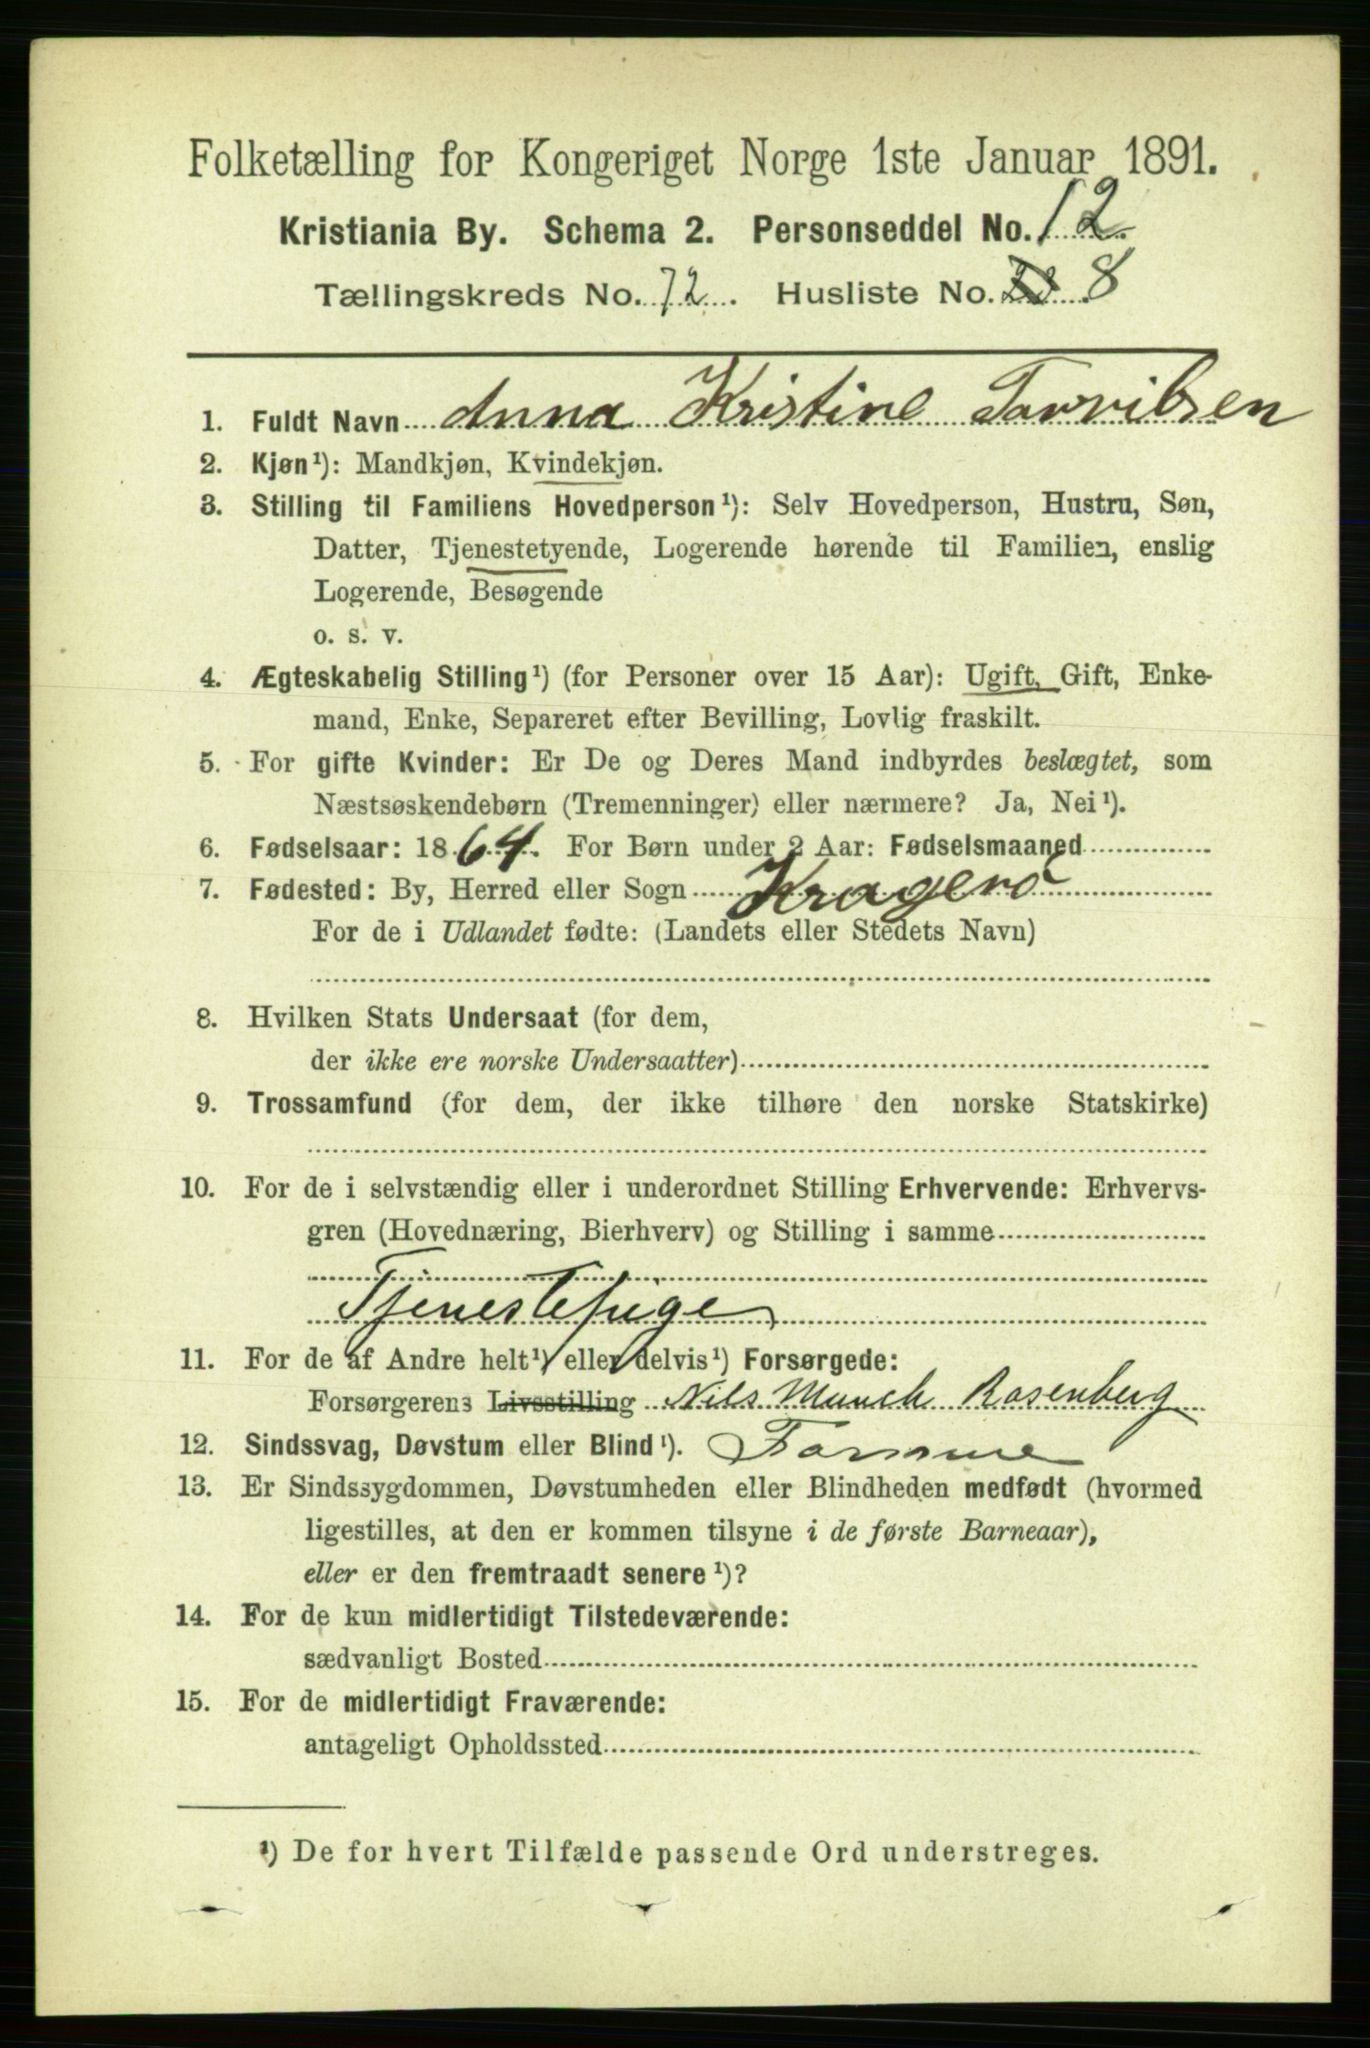 Folketælling for Kongeriget Norge 1ste Januar 1891.
Kristiania By. Schema 2. Personseddel No. 12.
Tællingskreds No. 72. Husliste No. 8
1. Fuldt Navn Anna Kristine Torvilsen
2. Kjøn¹): Mandkjøn, Kvindekjøn.
3. Stilling til Familiens Hovedperson¹): Selv Hovedperson, Hustru, Søn,
Datter, Tjenestetyende, Logerende hørende til Familien, enslig
Logerende, Besøgende
o. s. v.
4. Ægteskabelig Stilling¹) (for Personer over 15 Aar): Ugift, Gift, Enke-
mand, Enke, Separeret efter Bevilling, Lovlig fraskilt.
5. For gifte Kvinder: Er De og Deres Mand indbyrdes beslægtet, som
Næstsøskendebørn (Tremenninger) eller nærmere? Ja, Nei¹).
6. Fødselsaar: 1864. For Børn under 2 Aar: Fødselsmaaned
7. Fødested: By, Herred eller Sogn Kragerö
For de i Udlandet fødte: (Landets eller Stedets Navn)
8. Hvilken Stats Undersaat (for dem,
der ikke ere norske Undersaatter)
9. Trossamfund (for dem, der ikke tilhøre den norske Statskirke)
10. For de i selvstændig eller i underordnet Stilling Erhvervende: Erhvervs-
gren (Hovednæring, Bierhverv) og Stilling i samme
Tjenestepige
11. For de af Andre helt¹) eller delvis¹) Forsørgede:
Forsørgerens Livsstilling Nils Munch Rosenberg
12. Sindssvag, Døvstum eller Blind¹).
13. Er Sindssygdommen, Døvstumheden eller Blindheden medfødt (hvormed
ligestilles, at den er kommen tilsyne i de første Barneaar),
eller er den fremtraadt senere¹)?
14. For de kun midlertidigt Tilstedeværende:
sædvanligt Bosted
15. For de midlertidigt Fraværende:
antageligt Opholdssted
¹) De for hvert Tilfælde passende Ord understreges.